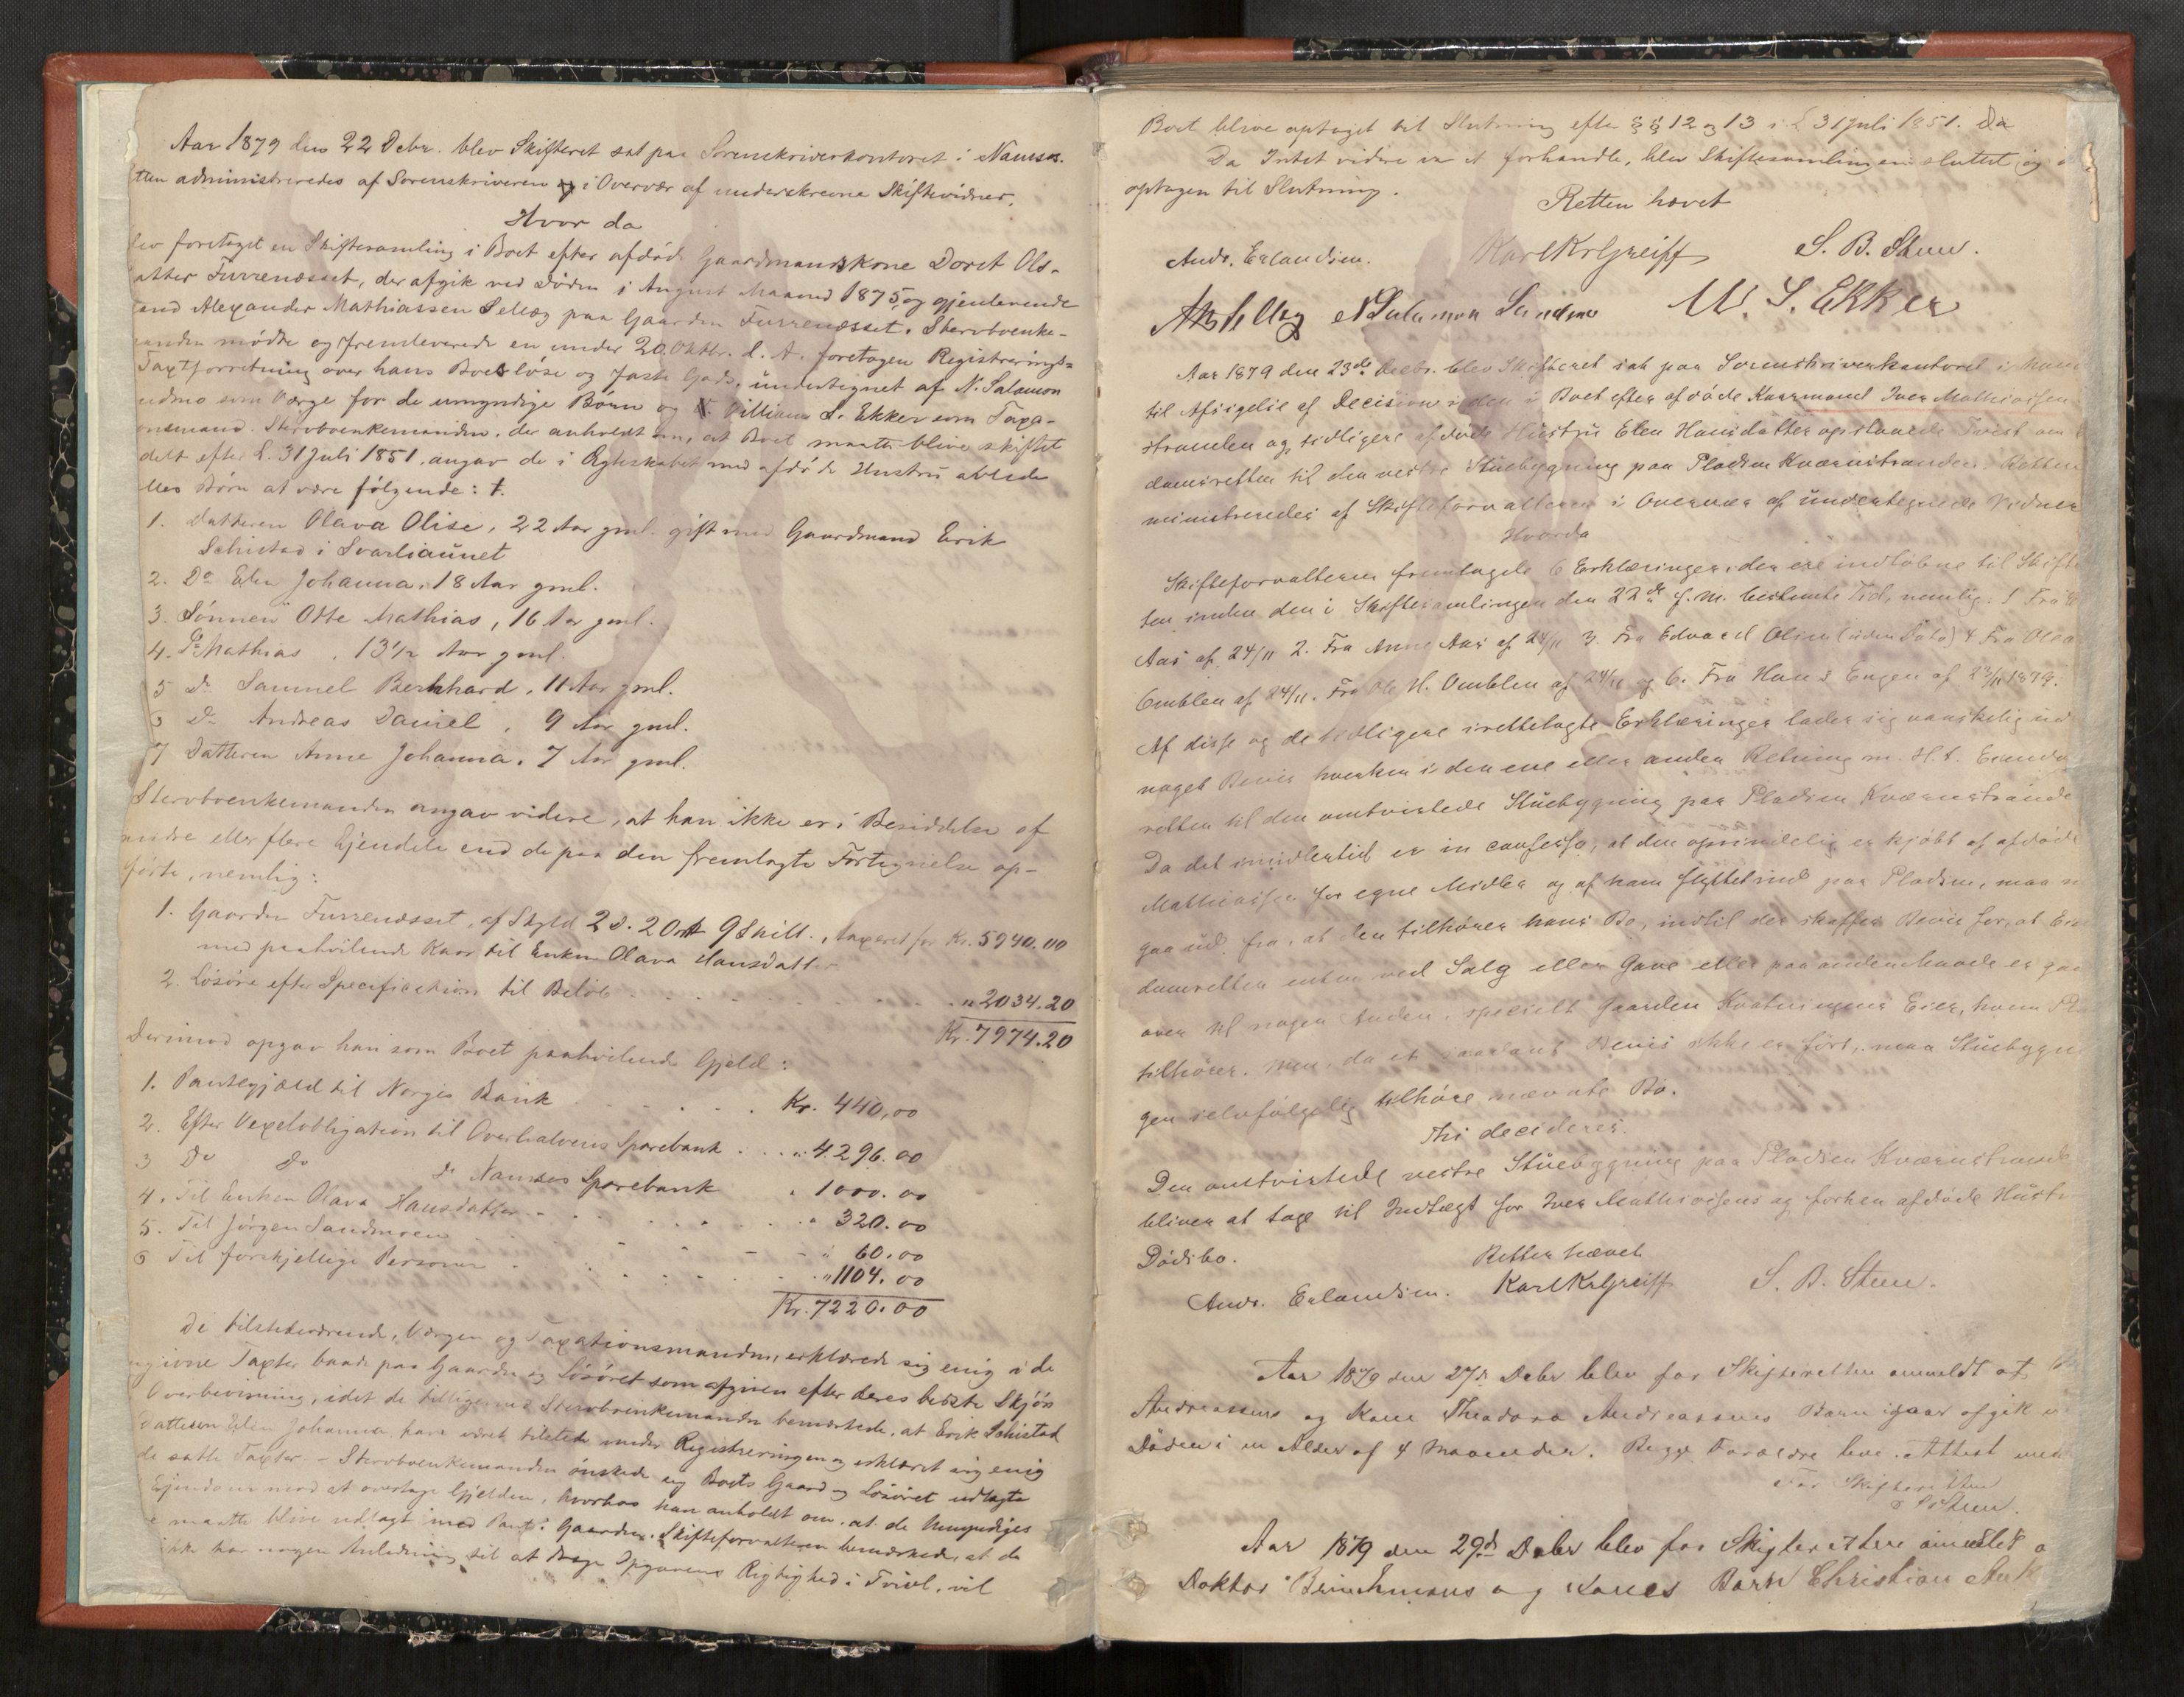 Aar 1879 den 22 Debr. blev Skifteret sat paa Sorenskriverkontoret i Namsos.
tten administreredes af Sorenskriveren og i Overvær af underskrevne Skiftevidner,
Hvor da
lev foretaget en Skiftesamling i Boet efter afdøde Gaardmandskone Doret Ols-
atter Furrenæsset, der afgik ved Døden i August Maaned 1875, og gjenlevende
and Alexander Mathiassen Sellæg paa Gaarden Furrenæsset. Stervboenke-
anden mødte og fremleverede en under 20. Oktbr. d. A. foretagen Registrerings-
Taxtforretning over hans Boes løse og faste Gods, undertegnet af N. Salamon
ndmo som Værge for de umyndige Børn og Villiam S. Ekker som Taxa-
onsmand. Stervboenkemanden, der anholdt om, at Boet maatte blive skiftet
delt efter L. 31 Juli 1851, angav de i Ægteskabet med afdøde Hustru avlede
lles Børn at være følgende:
1. Datteren Olava Olise, 22 Aar gml. gift med Gaardmand Erik
Schistad i Svarliaunet
2. Do Elen Johanna, 18 Aar gml.
3. Sønnen Otte Mathias, 16 Aar gml.
4. Do Mathias , 13½ Aar gml.
5 Do Samuel Bernhard, 11 Aar gml.
6 Do Andreas Daniel , 9 Aar gml.
7 Datteren Anne Johanna, 7 Aar gml.
Stervboenkemanden angav videre, at han ikke er i Besiddelse af
andre eller flere Ejendele end de paa den fremlagte Fortegnelse op-
førte, nemlig:
1. Gaarden Furrenæsset, af Skyld 2 D. 2 Ort 9 Skill., taxeret for Kr. 5940.00
med paahvilende Kaar til Enken Olava Hansdatter
2. Løsøre efter Specification til Beløb . . . . . „ 2034.20
Kr. 7974.20
Derimod opgav han som Boet paahvilende Gjeld:
1. Pantegjæld til Norges Bank . . . . . Kr. 440,00
2. Efter Vexelobligation til Overhalvens Sparebank . . . „ 4296.00
3 Do do do Namsos Sparebank „ 1000.00
4. Til Enken Olava Hansdatter . . . . „ 320.00
5. Til Jørgen Sandmoen . . . . „ 60.00
6 Til forskjellige Personer . . . . „ 1104.00
Kr. 7220.00
De tilstedeværende, Værgen og Taxationsmanden, erklærede sig enig i de
ngivne Taxter baade paa Gaarden og Løsøret som afgiven efter deres bedste Skjøn
Overbevisning, idet de tilligemed Stervboenkemanden bemærkede, at Erik Schistad
Datteren Elen Johanna have været tilstede under Registreringen og erklæret sig enig
de satte Taxter. – Stervboenkemanden ønskede sig Boets Gaard og Løsøret udlagte
Ejendom mod at overtage Gjelden, hvorhos han anholdt om, at de Umyndiges
maatte blive udlagt med Pant i Gaarden. Skifteforvalteren bemærkede, at da
ikke har nogen Anledning til at drage Opgavens Rigtighed i Tvivl, vil
Boet blive optaget til Slutning efter §§ 12 og 13 i L 31 Juli 1851. Da
Da Intet videre var at forhandle, blev Skiftesamlingen sluttet og
optagen til Slutning.
Retten hævet
Andr. Erlandsen. Karl Kr Greiff S. B. Steen.
N Salamon Sandmo W. S. Ekker
Aar 1879 den 23de Decbr. blev Skifteret sat paa Sorenskriverkontoret i Nam
til Afsigelse af Decision i den i Boet efter afdøde Kaarmand Iver Mathiassen
stranden og tidligere afdøde Hustru Elen Hansdatter opstaaede Tvist om
domsretten til den vestre Stuebygning paa Pladsen Kværnstranden. Retten
ministreredes af Skifteforvalteren i Overvær af undertegnede Vidner
Hvorda
Skifteforvalteren fremlagde 6 Erklæringer, der ere indløbne til Skifte
ten inden den i Skiftesamlingen den 22de f. M. bestemte Tid, nemlig: 1 Fra
Aas af 24/11 2. Fra Anne Aas af 24/11 3. Fra Edvard Olsen (uden Dato) 4 Fra Ole
Omblen af 24/11. Fra Ole H. Omblen af 24/11 og 6. Fra Hans Engen af 23/11 1879.
Af disse og de tidligere irettelagte Erklæringer lader sig vanskelig ud
noget Bevis hverken i den ene eller anden Retning m. H. t. Eiendo
retten til den omtvistede Stuebygning paa Pladsen Kværnstrande
Da det imidlertid er in confesso, at den oprindelig er kjøbt af afdøde
Mathiassen for egne Midler og af ham flyttet ind paa Pladsen, maa
gaa ud fra, at den tilhører hans Bo, indtil der skaffes Bevis for, at Eien
domsretten enten ved Salg eller Gave eller paa anden Maade er gaa
over til nogen Anden, specielt Gaarden Eier, hvem Pl
tilhører. Men, da et saadant Bevis ikke er ført, maa Stuebygn
gen selvfølgelig tilhøre nævnte Bo.
Thi decideres:
Den omtvistede vestre Stuebygning paa Pladsen Kværnstrand
bliver at tage til Indtægt for Iver Mathiassens og forhen afdøde Hustr
Dødsbo.
Retten hævet
Andr. Erlandsen. Karl Kr Greiff S. B. Steen.
Aar 1879 den 27de Debr blev for Skifteretten anmeldt at
Andreassens og Kone Theodora Andreassens Barn igaar afgik v
Døden i en Alder af 4 Maaneder. Begge Forældre leve. Attest med
For Skifteretten
S B Steen.
Aar 1879 den 29de Debr blev for Skifteretten anmeldt a
Doktor Brinchmans og Kones Barn Christian